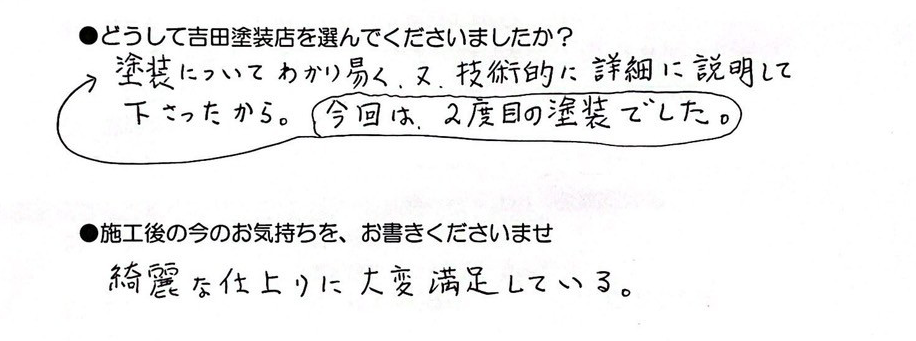 ●どうして吉田塗装店を選んでくださいましたか？
塗装についてわかり易く、又、技術的に詳細に説明して
下さったから。今回は、2度目の塗装でした。
●施工後の今のお気持ちを、お書きくださいませ
綺麗な仕上りに大変満足している。